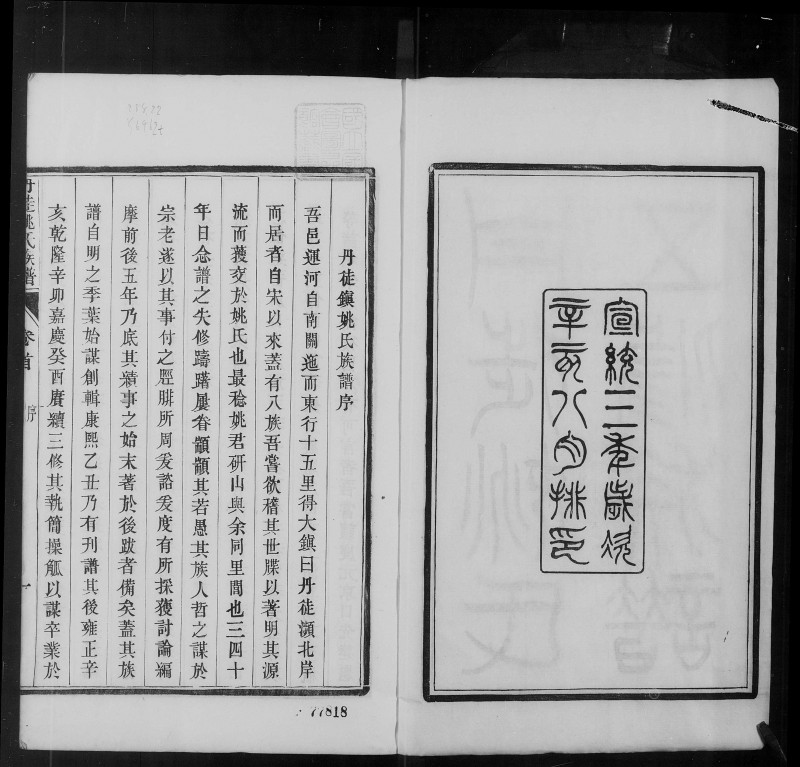 宣統三年歲次
辛亥八月排印
丹徒鎮姚氏族譜序
吾邑運河自南關迤而東行十五里得大鎮曰丹徒瀕北岸
而居者自宋以來蓋有八族吾嘗欲稽其世牒以著明其源
流而獲交於姚氏也最稔姚君研山與余同里閈也三四十
年日念譜之失修躊躇屢眷顓顓其若愚其族人哲之謀於
宗老遂以其事付之脛腓所周爰諮爰度有所採獲討論編
摩前後五年乃底其績事之始末著於後跋者備矣蓋其族
譜自明之季葉始謀創輯康熙乙丑乃有刊譜其後雍正辛
亥乾隆辛卯嘉慶癸酉賡續三修其執簡操觚以謀卒業於
丹徒姚氏族譜
卷首
序
一
77818